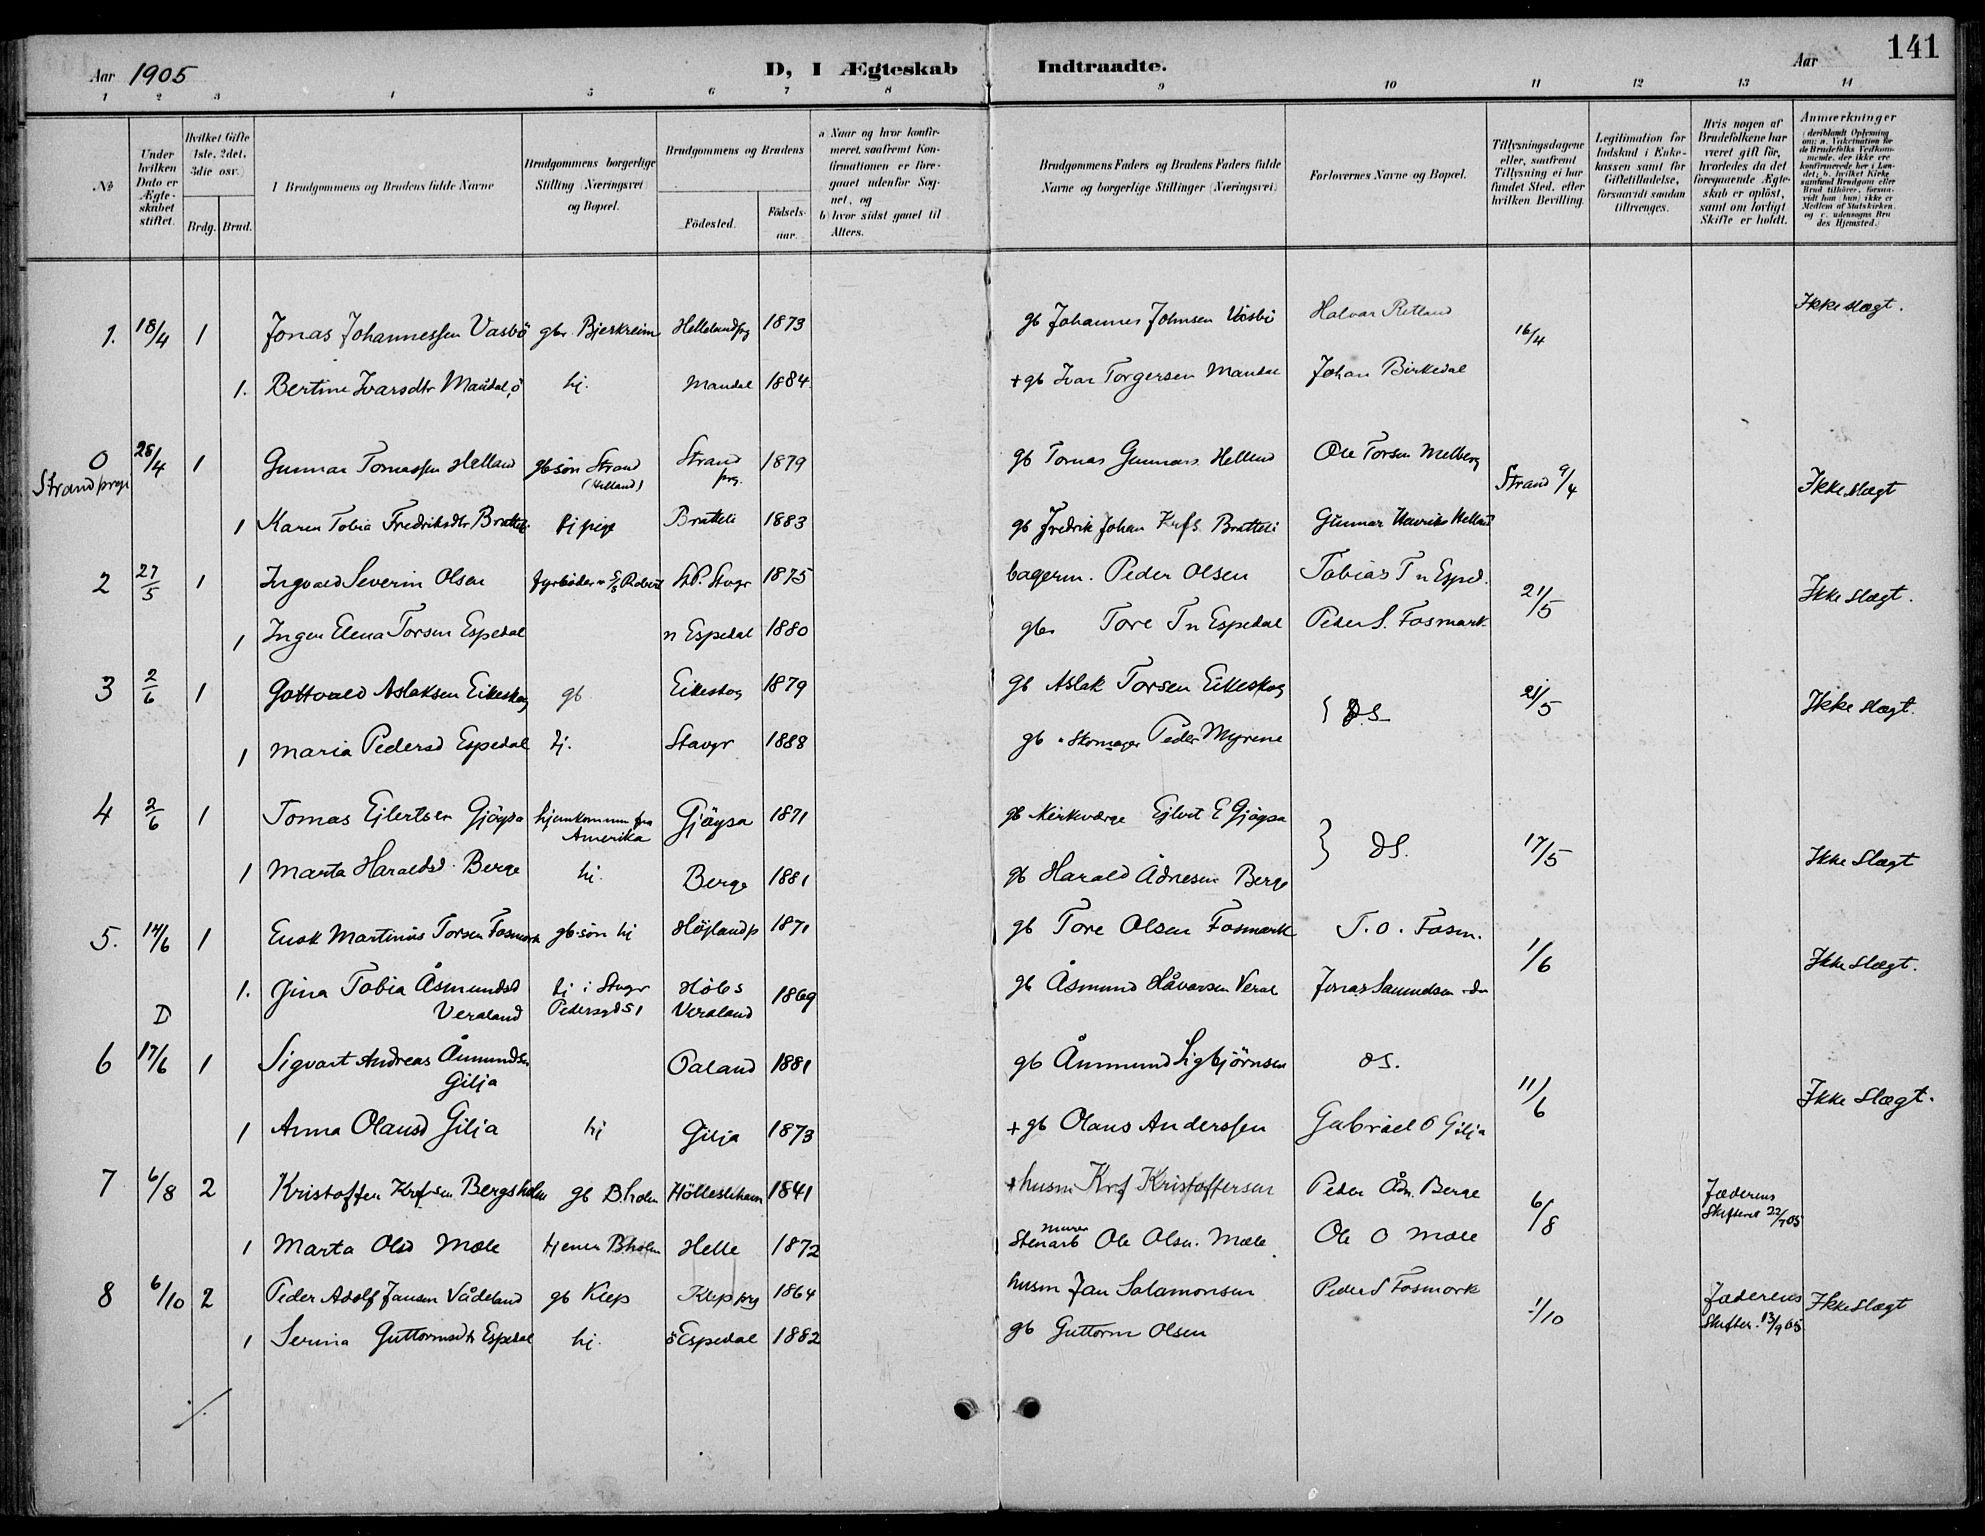 Aar 1905 D, I Ægteskab Indtraadte. Aar 141
1 2 3 4 5 6 7 8 9 10 11 12 13 14
No
Under hvilken Dato er Ægteskabet stiftet.
Hvilket Gifte (1ste, 2det, 3die osv.)
Brdg. Brud.
1 Brudgommens og Brudens fulde Navne
Brudgommens borgerlige Stilling (Næringsvei) og Bopæl.
Brudgommens og Brudens
Födested.
Födselsaar.
a) Naar og hvor konfirmeret, saafremt Konfirmationen er foregaaet udenfor Sognet, og
b) hvor sidst gaaet til Alters.
Brudgommens Faders og Brudens Faders fulde Navne og borgerlige Stillinger (Næringsvei)
Forlovernes Navne og Bopæl.
Tillysningsdagene eller, saafremt Tillysning ei har fundet Sted, efter hvilken Bevilling.
Legitimation for Indskud i Enkekassen samt for Giftetilladelse, forsaavidt saadan tiltrænges.
Hvis nogen af Brudefolkene har været gift för, hvorledes da det foregaaende Ægteskab er oplöst, samt om lovligt Skifte er holdt.
Anmærkninger
1. 18/4 1 Jonas Johannessen Vasbö gbr Bjerkreim Hellelandprg 1873 gb Johannes Johnsen Vasbö Halvar Retland 16/4 Ikke slægt.
1. Bertine Ivarsdtr Maudal, ö hj. Maudal 1884 + gb Ivar Torgersen Maudal Johan Birkedal
0 Strand prgj 28/4 1 Gunnar Tomassen Helland gbsön Strand (Helland) Strand prg. 1879 gb Tomas Gunnars. Helland Ole Torsen Melberg Strand 9/4 Ikke slægt
1 Karen Tobia Fredriksdtr Bratteli tj pige Bratteli 1883 gb Fredrik Johan Krfs. Bratteli Gunnar Henriks Helland
2 27/5 1 Ingvald Severin Olsen fyrböder St.P. Stvgr 1875 bagerm. Peder Olsen Tobias T n Esped. 21/5 Ikke slægt.
1 Inger Elena Torsen Espedal n Espedal 1880 gbr Tore T n Espedal Peder S. Fosmark
3 2/6 1 Gottvald Aslaksen Eikeskog gb Eikeskog 1879 gb Aslak Torsen Eikeskog } DS 21/5 Ikke slægt.
1 Maria Pedersd Espedal tj. Stavgr 1888 gb skomager Peder Myrene
4 2/6 1 Tomas Ejlertsen Gjöysa hjemkommen fra Amerika Gjöysa 1871 gb Kirkværge Ejlert E Gjöysa } DS. 17/5 Ikke Slægt
1 Marta Haraldsd. Berge hj. Berge 1881 gb Harald Ådnesen Berge
5. 14/6 1 Enok Martinus Torsen Fosmark gb.sön hj Höjlandp 1871 gb Tore Olsen Fosmark T. O. Fosm. 1/6 Ikke Slægt.
D 1. Gina Tobia Åsmundsd Veraland tj i Stvgr Pedersgd 51 Höles Veraland 1869 gb Åsmund Håvarsen Veral Jonas
6 17/6 1 Sigvart Andreas Ånmundsen Gilja Oaland 1881 gb Ånmund Sigbjörnsen DS. 11/6 Ikke Slægt.
1 Anna Olausd Gilja hj Gilja 1873 + gb Olaus Anderssen Gabriel O Gilja
7 6/8 2 Kristoffer Krfsen Bergsholm gb B.holm Hölleslihavn 1841 + husm Krf Kristoffersen Peder Ådn. Berge 6/8 Jæderens Skifteret 22/7 05
1 Marta Olsd Mæle tjener B.holm Helle 1872 murer Stenarb Ole Olsn. Mæle Ole O Mæle
8 6/10 2 Peder Adolf Jansen Vådeland gb Klep Klepp prg 1864 husm Jan Salamonsen Peder S Fosmork 1/10 Jæderens Skifter. 13/9 05 Ikke slægt
1 Serina Guttormsdtr Espedal hj. s Espedal 1882 gb Guttorm Olsen